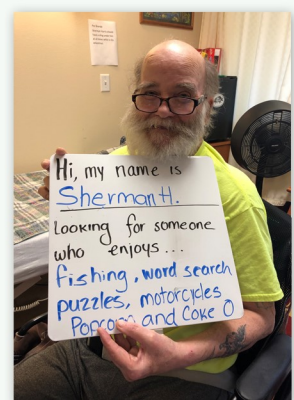 Hi, my name is
Sherman H.
Looking for someone
who enjoys...
fishing, word search
puzzles, motorcycles
Popcorn and Coke O